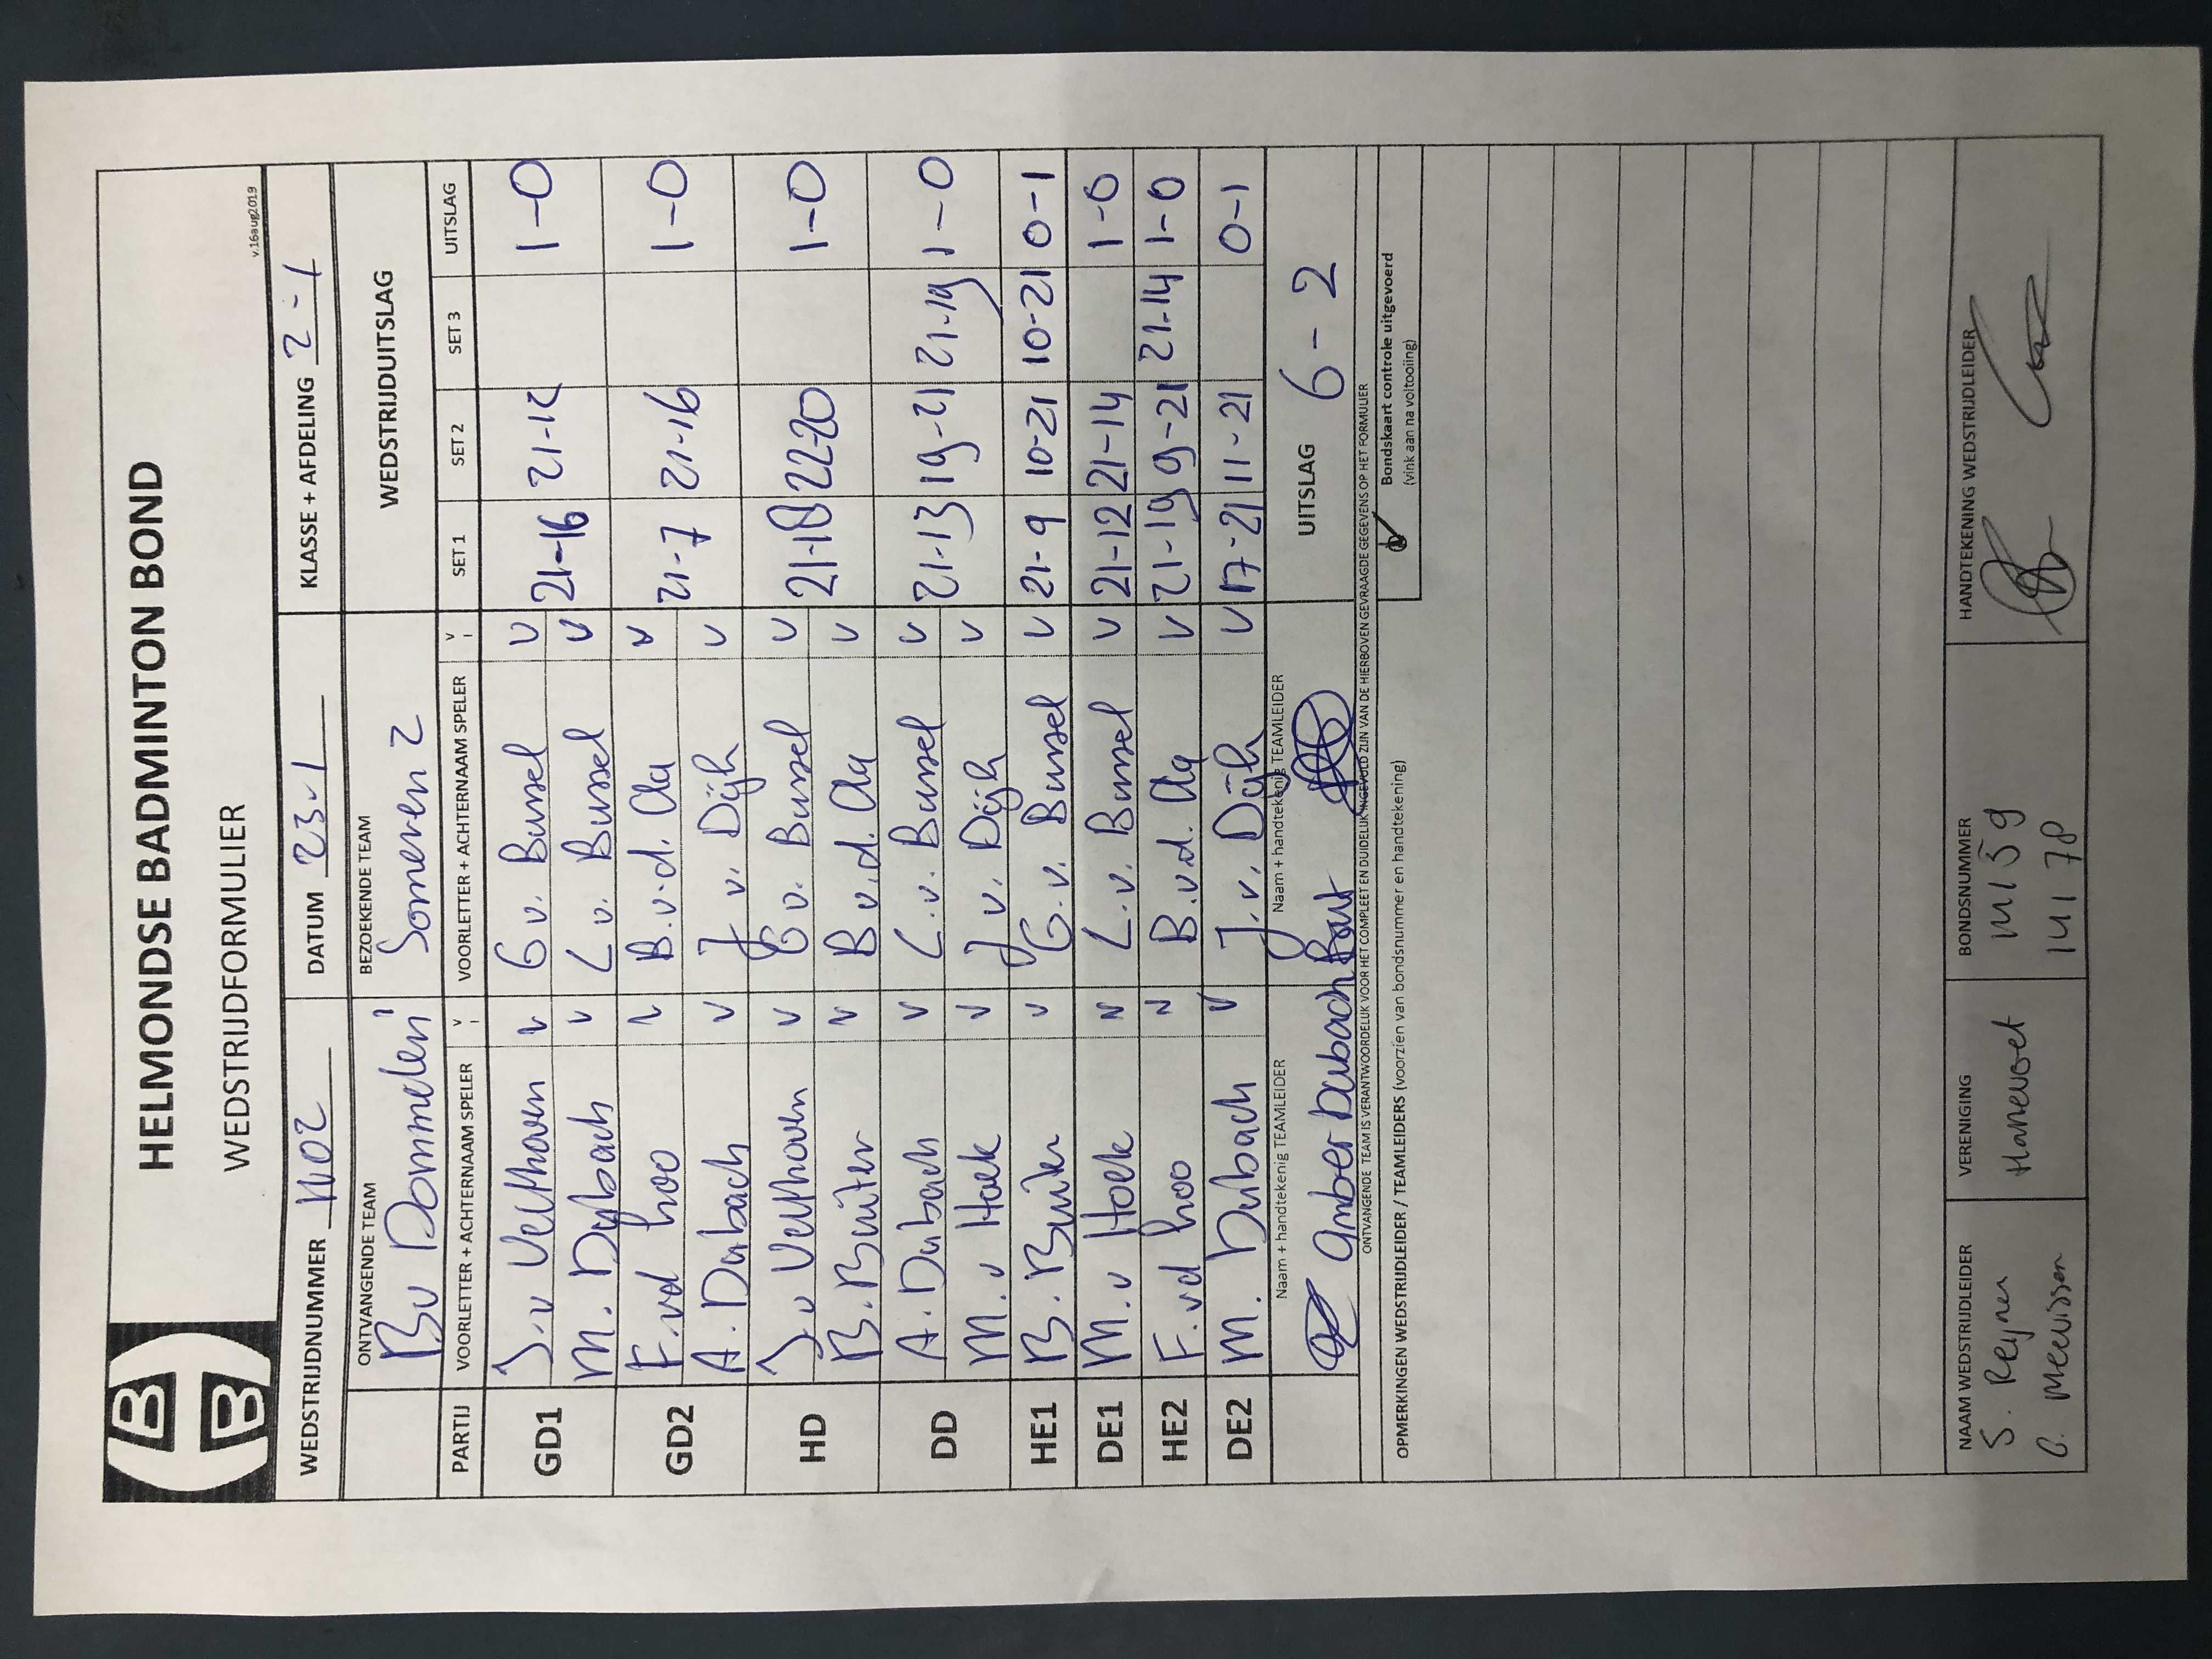 HELMONDSE BADMINTON BOND
WEDSTRIJDFORMULIER
v.16aug2019
WEDSTRIJDNUMMER 1102 DATUM 23-1 KLASSE + AFDELING 2-1
ONTVANGENDE TEAM BEZOEKENDE TEAM WEDSTRIJDUITSLAG
BV Dommelen 1 Someren 2
PARTIJ VOORLETTER + ACHTERNAAM SPELER V VOORLETTER + ACHTERNAAM SPELER V SET 1 SET 2 SET 3 UITSLAG
GD1 J.v Velthoven v G v. Bussel v 21-16 21-12 1-0
M. Dubach v L v. Bussel v
GD2 F.vd hoo v B.v.d. Aa v 21-7 21-16 1-0
A. Dubach v J v. Dijk v
HD J.v Velthoven v G v. Bussel v 21-18 22-20 1-0
B. Buiter v B v.d. Aa v
DD A. Dubach v L.v. Bussel v 21-13 19-21 21-19 1-0
M. v Hoek v J v. Dijk v
HE1 B. Buiter v G.v. Bussel v 21-9 10-21 10-21 0-1
DE1 M. v Hoek v L.v. Bussel v 21-12 21-14 1-0
HE2 F. vd hoo v B.v.d. Aa v 21-19 9-21 21-14 1-0
DE2 M. Dubach v J.v. Dijk v 17-21 11-21 0-1
Naam + handtekenig TEAMLEIDER Naam + handtekenig TEAMLEIDER
Amber Dubach UITSLAG 6-2
ONTVANGENDE TEAM IS VERANTWOORDELIJK VOOR HET COMPLEET EN DUIDELIJK INGEVULD ZIJN VAN DE HIERBOVEN GEVRAAGDE GEGEVENS OP HET FORMULIER
Bondskaart controle uitgevoerd
(vink aan na voltooiing)
OPMERKINGEN WEDSTRIJDLEIDER / TEAMLEIDERS (voorzien van bondsnummer en handtekening)
NAAM WEDSTRIJDLEIDER VERENIGING BONDSNUMMER HANDTEKENING WEDSTRIJDLEIDER
S. Reyner Hanevoet M159
B. Mewissen 14170